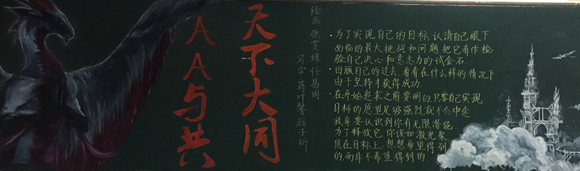 天下大同
AA与共
绘画 徐
任易朋
写字 蒋叶馨 
·为了实现自己的目标,认清自己眼下
面临的最大挑战和问题,把它看作检
验自己决心和意志力的试金石.
·回顾自己的过去,看看在什么样的情况下
由于坚持才获得成功.
·在开始起来之前要明白,只要自己实现
目标的愿望足够强烈,就不会中
放弃 要认识到你有无限潜能
为了释放它,你该如激光聚
焦在目标上,想想希望得到
的,而非不希望得到的